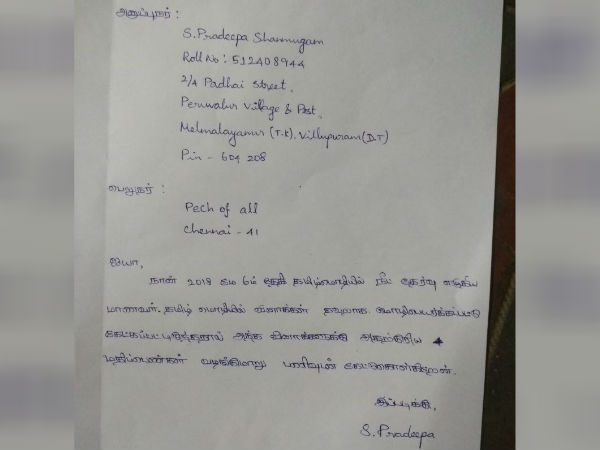 அனுப்புநர் :
S.Pradeepa Shanmugam
Roll No : 512408944
2/4 Padhai Street,
Peruvalur Village & Post,
Melmalayanur (T.K), Villupuram (D.T)
Pin - 604 208
பெறுநர் :
Pech of all
Chennai - 41
ஐயா,
நான் 2018 மே 6ம் தேதி தமிழ்மொழியில் நீட் தேர்வு எழுதிய
மாணவர். தமிழ் மொழியில் வினாக்கள் தவறாக மொழிபெயர்க்கப்பட்டு
கேட்கப்பட்டிருந்ததால் அந்த வினாக்களுக்கு அதற்குரிய 4
மதிப்பெண்கள் வழங்குமாறு பணிவுடன் கேட்டுக்கொள்கிறேன்.
இப்படிக்கு,
S. Pradeepa